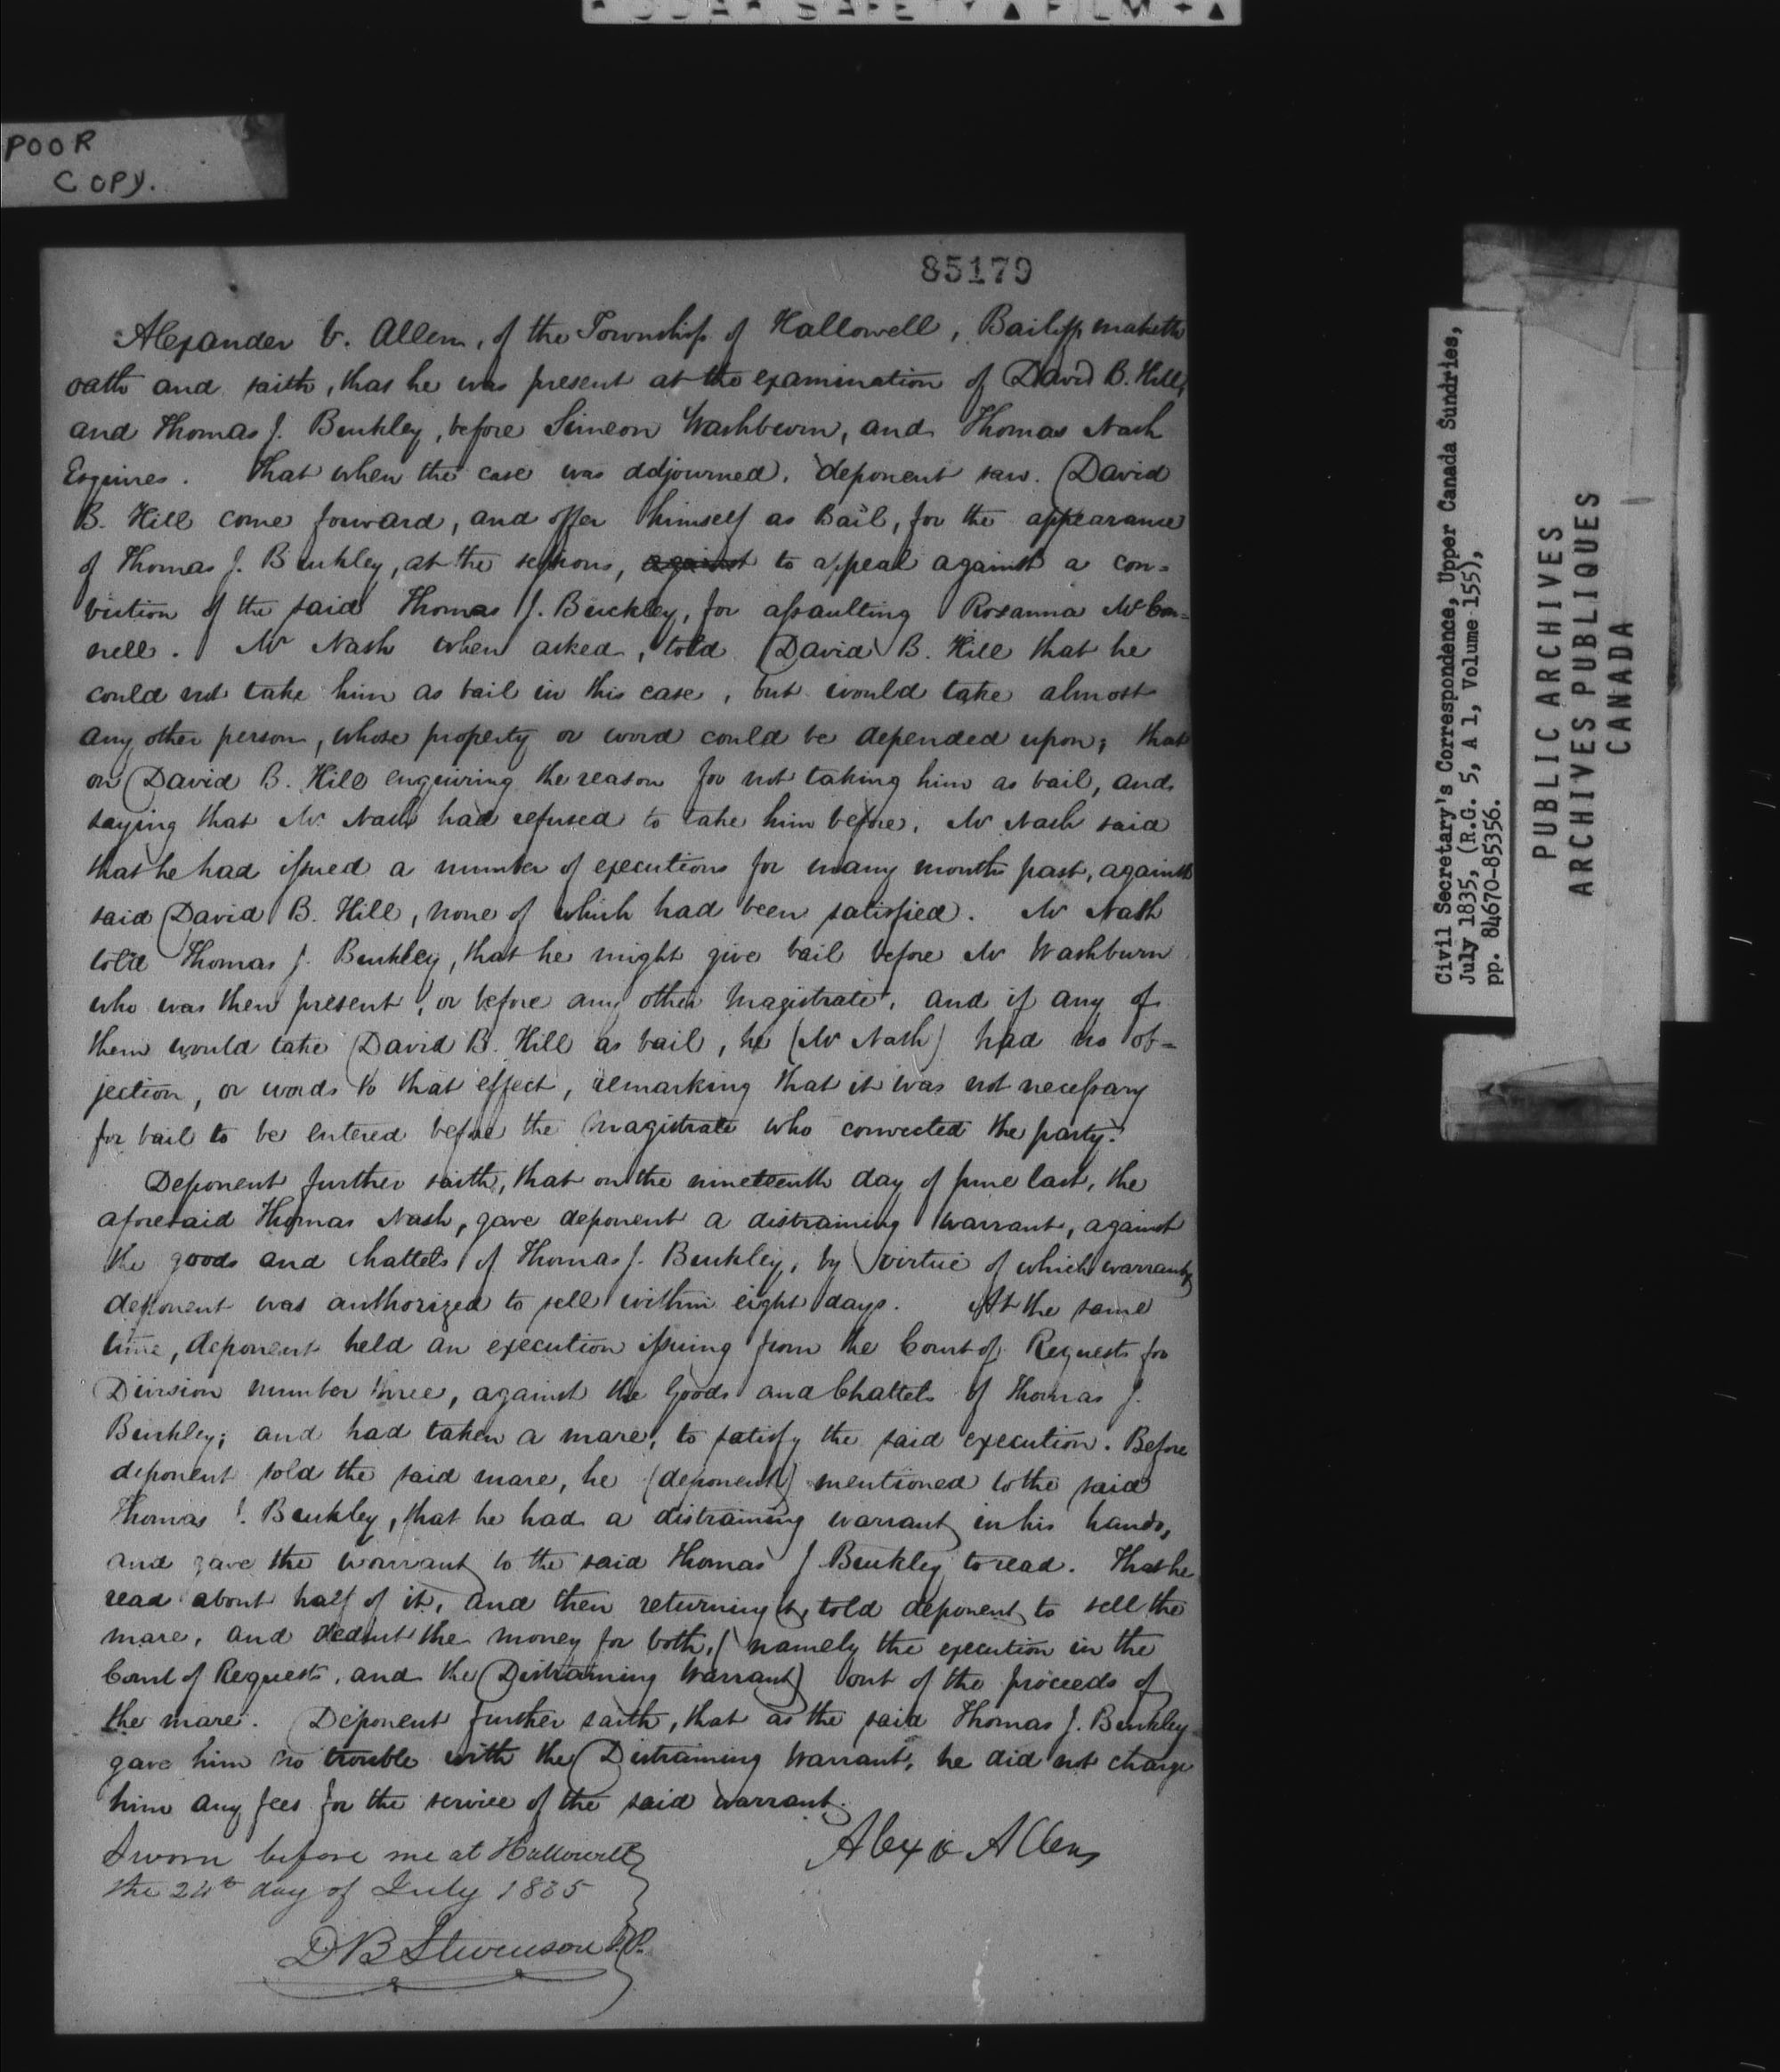 KODAK SAFETY ▲ FILM + ▲
POOR
COPY.
85179
Alexander V. Allen, of the Township of Hallowell, Bailiff maketh
oath and saith, that he was present at the examination of David B. Hill,
and Thomas J. Buckley, before Simeon Washburn, and Thomas Nash
Esquires. That when the case was adjourned, deponent saw David
B. Hill come forward, and offer himself as Bail, for the appearance
of Thomas J. Buckley, at the sessions, against to appeal against a con=
viction of the said Thomas J. Buckley, for assaulting Rosanna McCon=
nell. Mr Nash when asked, told David B. Hill that he
could not take him as bail in this case, but would take almost
any other person, whose property or word could be depended upon; that
on David B. Hill enquiring the reason for not taking him as bail, and
saying that Mr. Nash had refused to take him before, Mr Nash said
that he had issued a number of executions for many months past, against
said David B. Hill, none of which had been satisfied. Mr Nash
told Thomas J. Buckley, that he might give bail before Mr Washburn
who was then present, or before any other magistrate, and if any of
them would take David B. Hill as bail, he (Mr Nash) had no ob=
jection, or words to that effect, remarking that it was not necessary
for bail to be entered before the magistrate who convicted the party.
Deponent further saith, that on the nineteenth day of June last, the
aforesaid Thomas Nash, gave deponent a distraining warrant, against
the goods and chattels of Thomas J. Buckley, by virtue of which warrant,
deponent was authorized to sell within eight days. At the same
time, deponent held an execution issuing from the Court of Requests for
Division number three, against the Goods and Chattels of Thomas J.
Buckley; and had taken a mare, to satisfy the said execution. Before
deponent sold the said mare, he (deponent) mentioned to the said
Thomas J. Buckley, that he had a distraining warrant in his hands,
and gave the warrant to the said Thomas J Buckley to read. That he
read about half of it, and then returning it, told deponent to sell the
mare, and deduct the money for both, (namely the execution in the
Court of Requests, and the Distraining Warrant) out of the proceeds of
the mare. Deponent further saith, that as the said Thomas J. Buckley
gave him no trouble with the Distraining Warrant, he did not charge
him any fees for the service of the said warrant.
Sworn before me at Hallowell
the 24th day of July 1835
Alexr V Allen
D B Stevenson J.P.
Civil Secretary's Correspondence, Upper Canada Sundries,
July 1835, (R.G. 5, A 1, Volume 155),
pp. 84670-85356.
PUBLIC ARCHIVES
ARCHIVES PUBLIQUES
CANADA